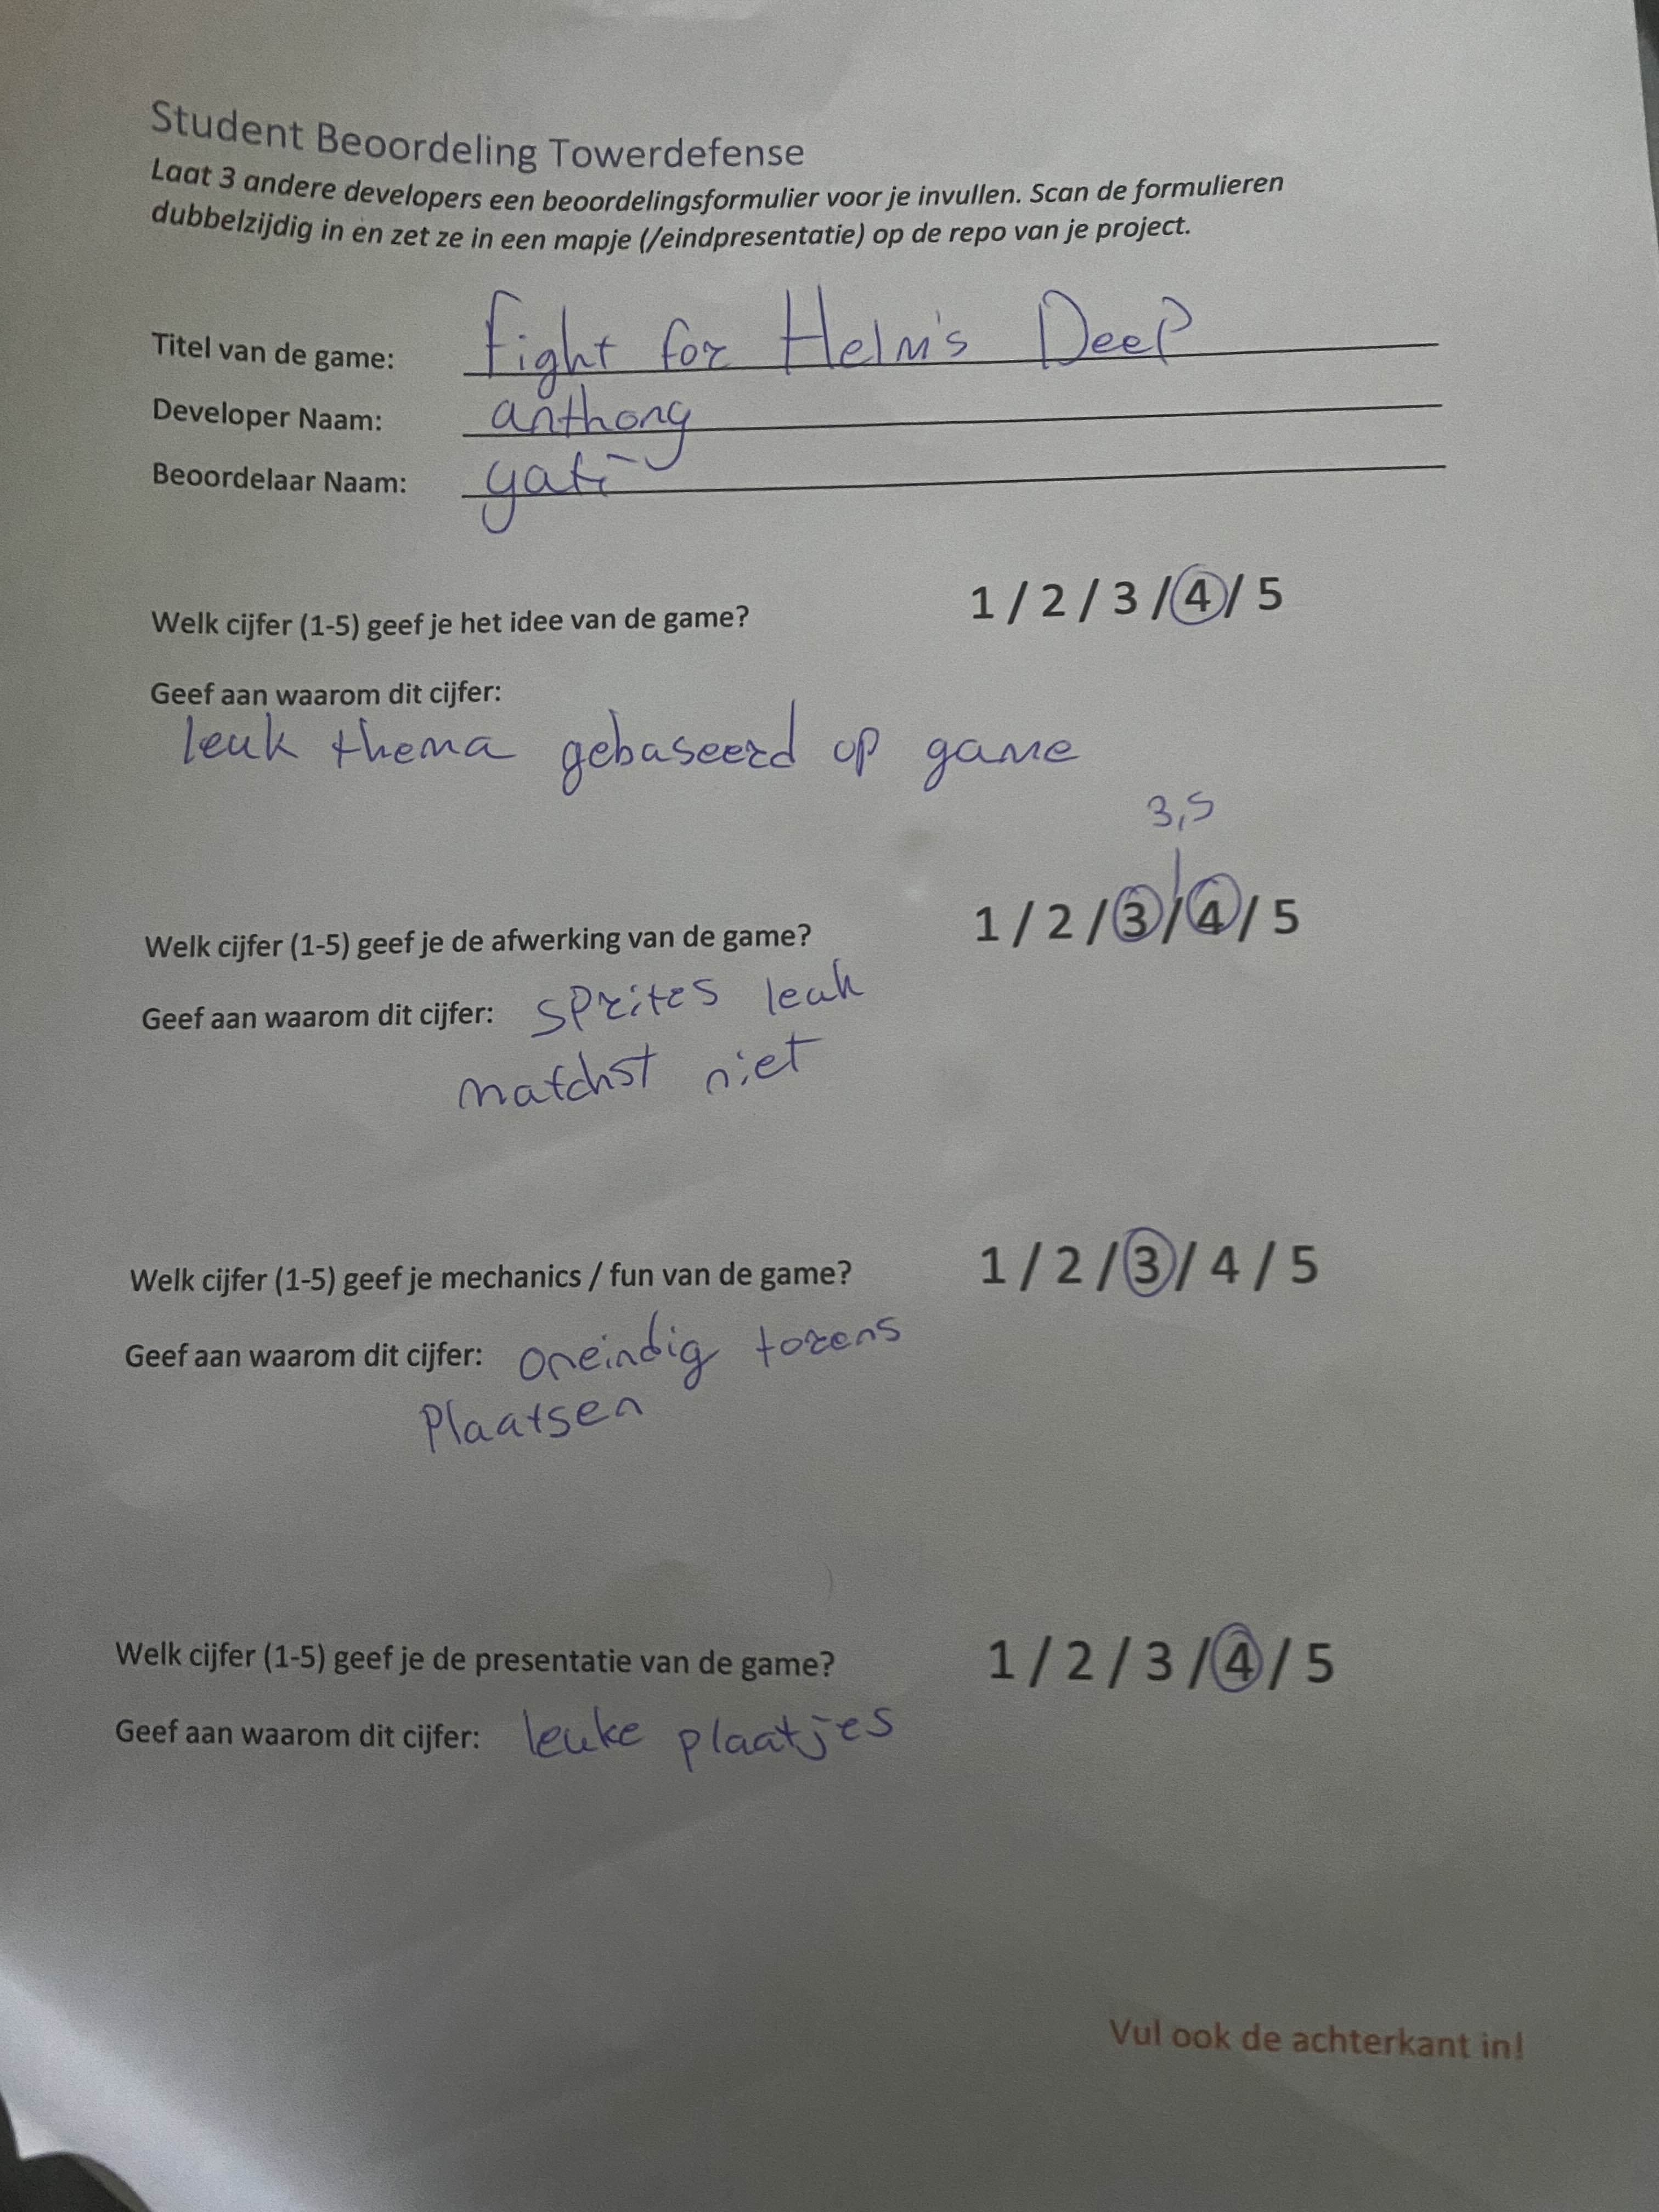 Student Beoordeling Towerdefense
Laat 3 andere developers een beoordelingsformulier voor je invullen. Scan de formulieren
dubbelzijdig in en zet ze in een mapje (/eindpresentatie) op de repo van je project.
Titel van de game: Fight for Helm's Deep
Developer Naam: anthony
Beoordelaar Naam: yati
Welk cijfer (1-5) geef je het idee van de game? 1 / 2 / 3 / 4 / 5
Geef aan waarom dit cijfer:
leuk thema gebaseerd op game
3,5
Welk cijfer (1-5) geef je de afwerking van de game? 1 / 2 / 3 / 4 / 5
Geef aan waarom dit cijfer: sprites leuk
matchst niet
Welk cijfer (1-5) geef je mechanics / fun van de game? 1 / 2 / 3 / 4 / 5
Geef aan waarom dit cijfer: oneindig torens
Plaatsen
Welk cijfer (1-5) geef je de presentatie van de game? 1 / 2 / 3 / 4 / 5
Geef aan waarom dit cijfer: leuke plaatjes
Vul ook de achterkant in!